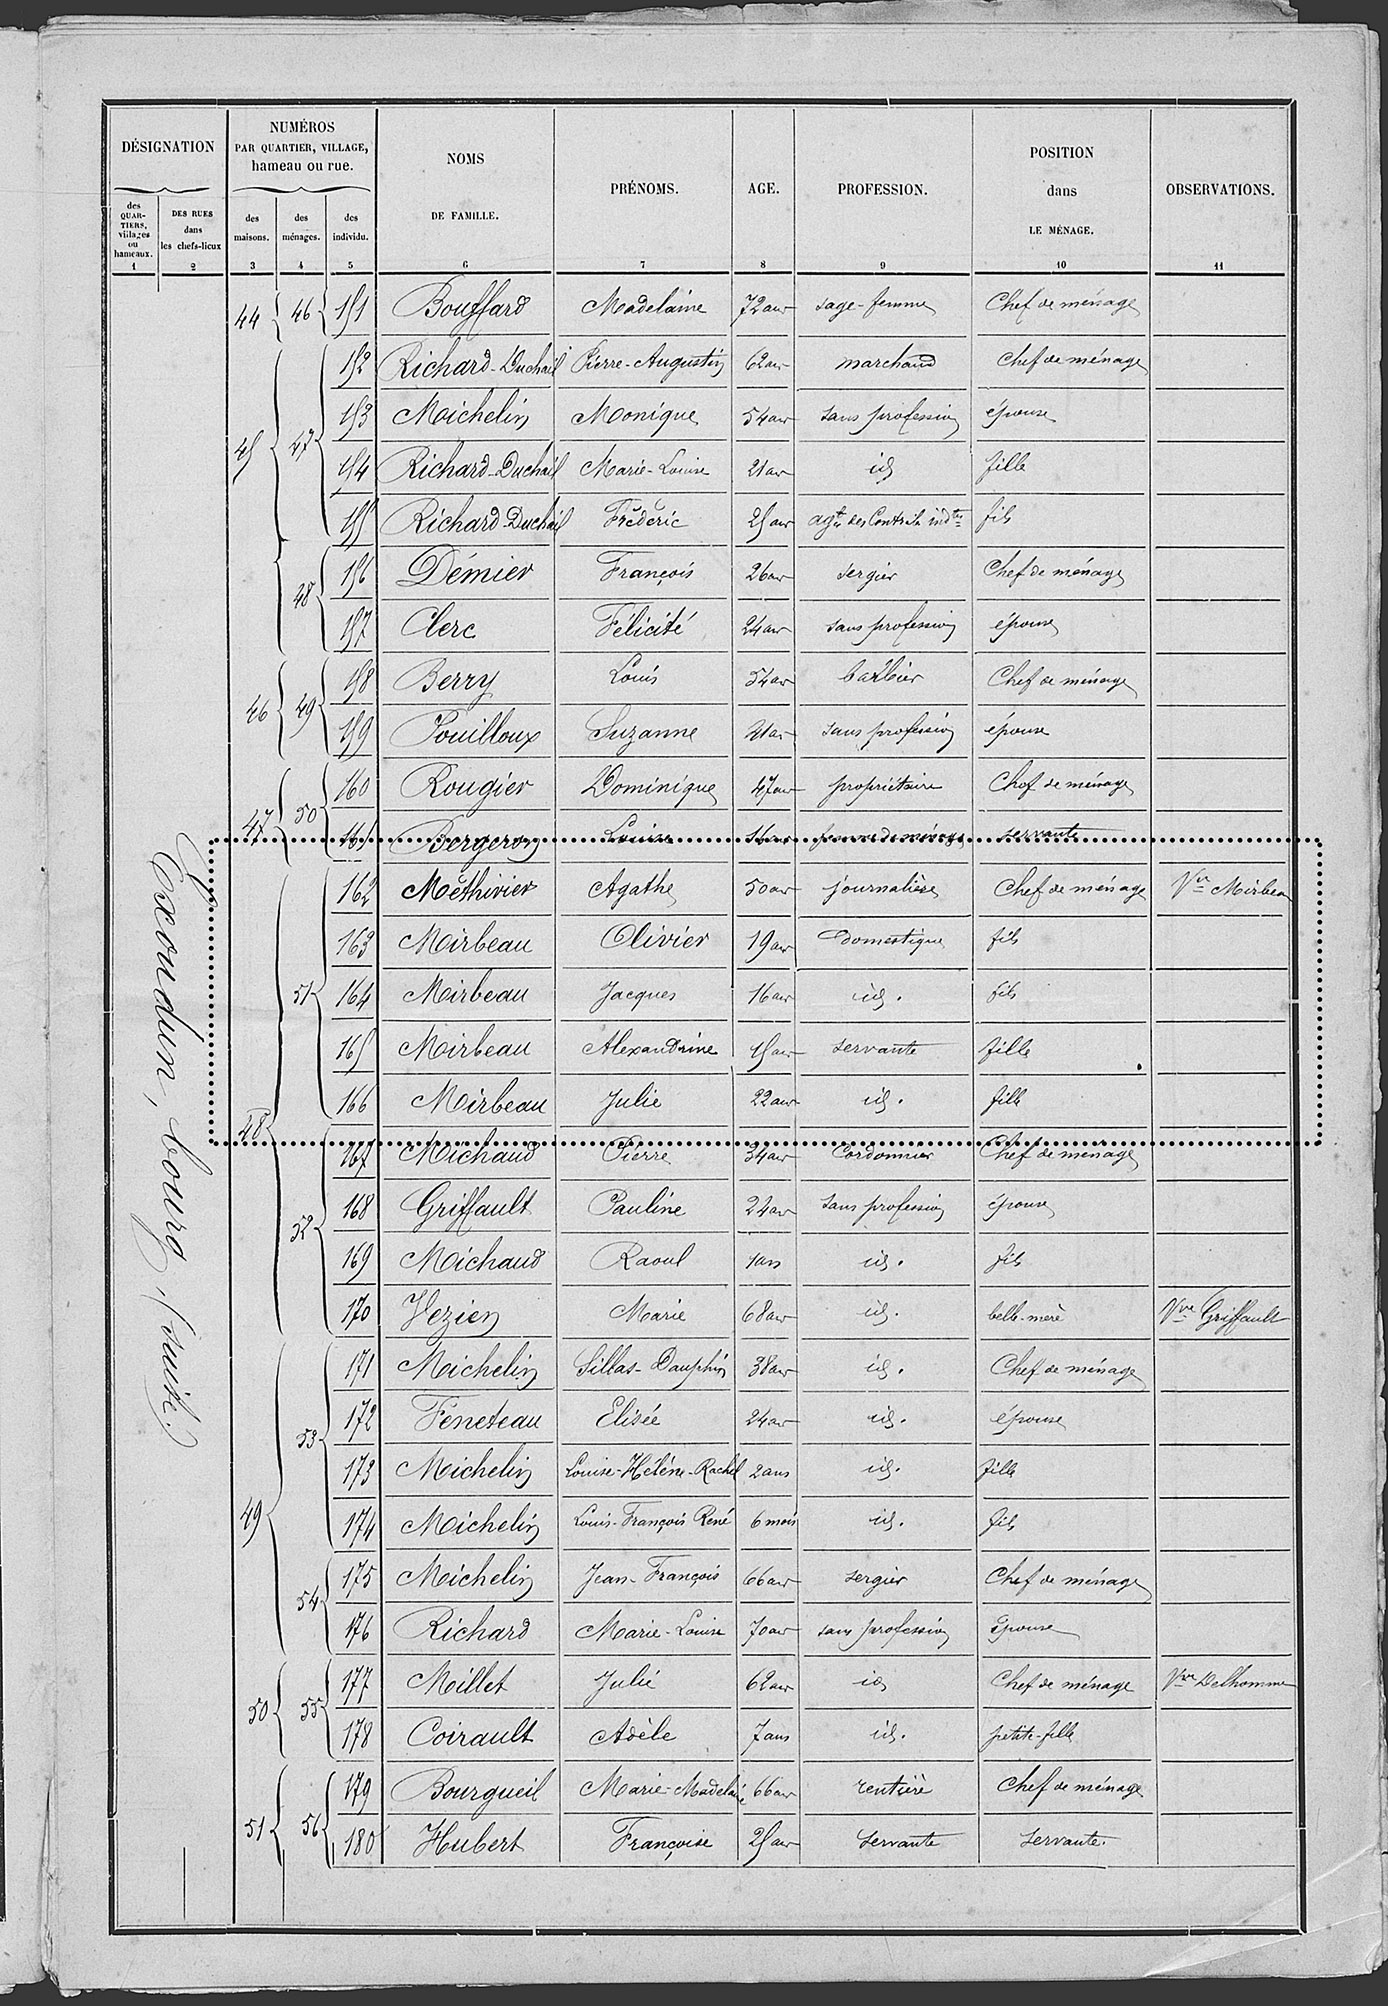 DÉSIGNATION
NUMÉROS
PAR QUARTIER, VILLAGE,
hameau ou rue.
NOMS
DE FAMILLE.
PRÉNOMS.
AGE.
PROFESSION.
POSITION
dans
LE MÉNAGE.
OBSERVATIONS.
des
QUAR-
TIERS,
villages
ou
hameaux.
DES RUES
dans
les chefs-lieux
des
maisons.
des
ménages.
des
individu.
1 2 3 4 5 6 7 8 9 10 11
Exoudun, bourg, (suite.)
44 46 151 Bouffard Madelaine 72 ans sage-femme Chef de ménage
45 47 152 Richard-Duchail Pierre-Augustin 62 ans marchand chef de ménage
153 Michelin Monique 54 ans sans profession épouse
154 Richard-Duchail Marie-Louise 21 ans id fille
155 Richard-Duchail Frédéric 25 ans agt des Contrib. indtes fils
48 156 Démier François 26 ans sergier Chef de ménage
157 Clerc Félicité 24 ans sans profession épouse
46 49 158 Berry Louis 54 ans barbier Chef de ménage
159 Pouilloux Suzanne ans sans profession épouse
47 50 160 Rougier Dominique 47 ans propriétaire Chef de ménage
161 Bergeron Louise 16 ans femme de ménage servante
48 51 162 Méthivier Agathe 50 ans journalière Chef de ménage Vve Mirbeau
163 Mirbeau Olivier 19 ans domestique fils
164 Mirbeau Jacques 16 ans id. fils
165 Mirbeau Alexandrine 15 ans servante fille
166 Mirbeau Julie 22 ans id. fille
52 167 Michaud Pierre 34 ans Cordonnier Chef de ménage
168 Griffault Pauline 24 ans sans profession épouse
169 Michaud Raoul 1 an id. fils
170 Vezien Marie 68 ans id. belle-mère Vve Griffault
49 53 171 Michelin Sillas-Dauphin 38 ans id. Chef de ménage
172 Feneteau Elisée 24 ans id. épouse
173 Michelin Louise-Hélène-Rachel 2 ans id. fille
174 Michelin Louis-François René 6 mois id. fils
54 175 Michelin Jean-François 66 ans sergier Chef de ménage
176 Richard Marie-Louise 70 ans sans profession épouse
50 55 177 Millet Julie 62 ans id Chef de ménage Vve Delhomme
178 Coirault Adèle 7 ans id. petite-fille
51 56 179 Bourgueil Marie-Madelaine 66 ans rentière Chef de ménage
180 Hubert Françoise 25 ans servante servante.